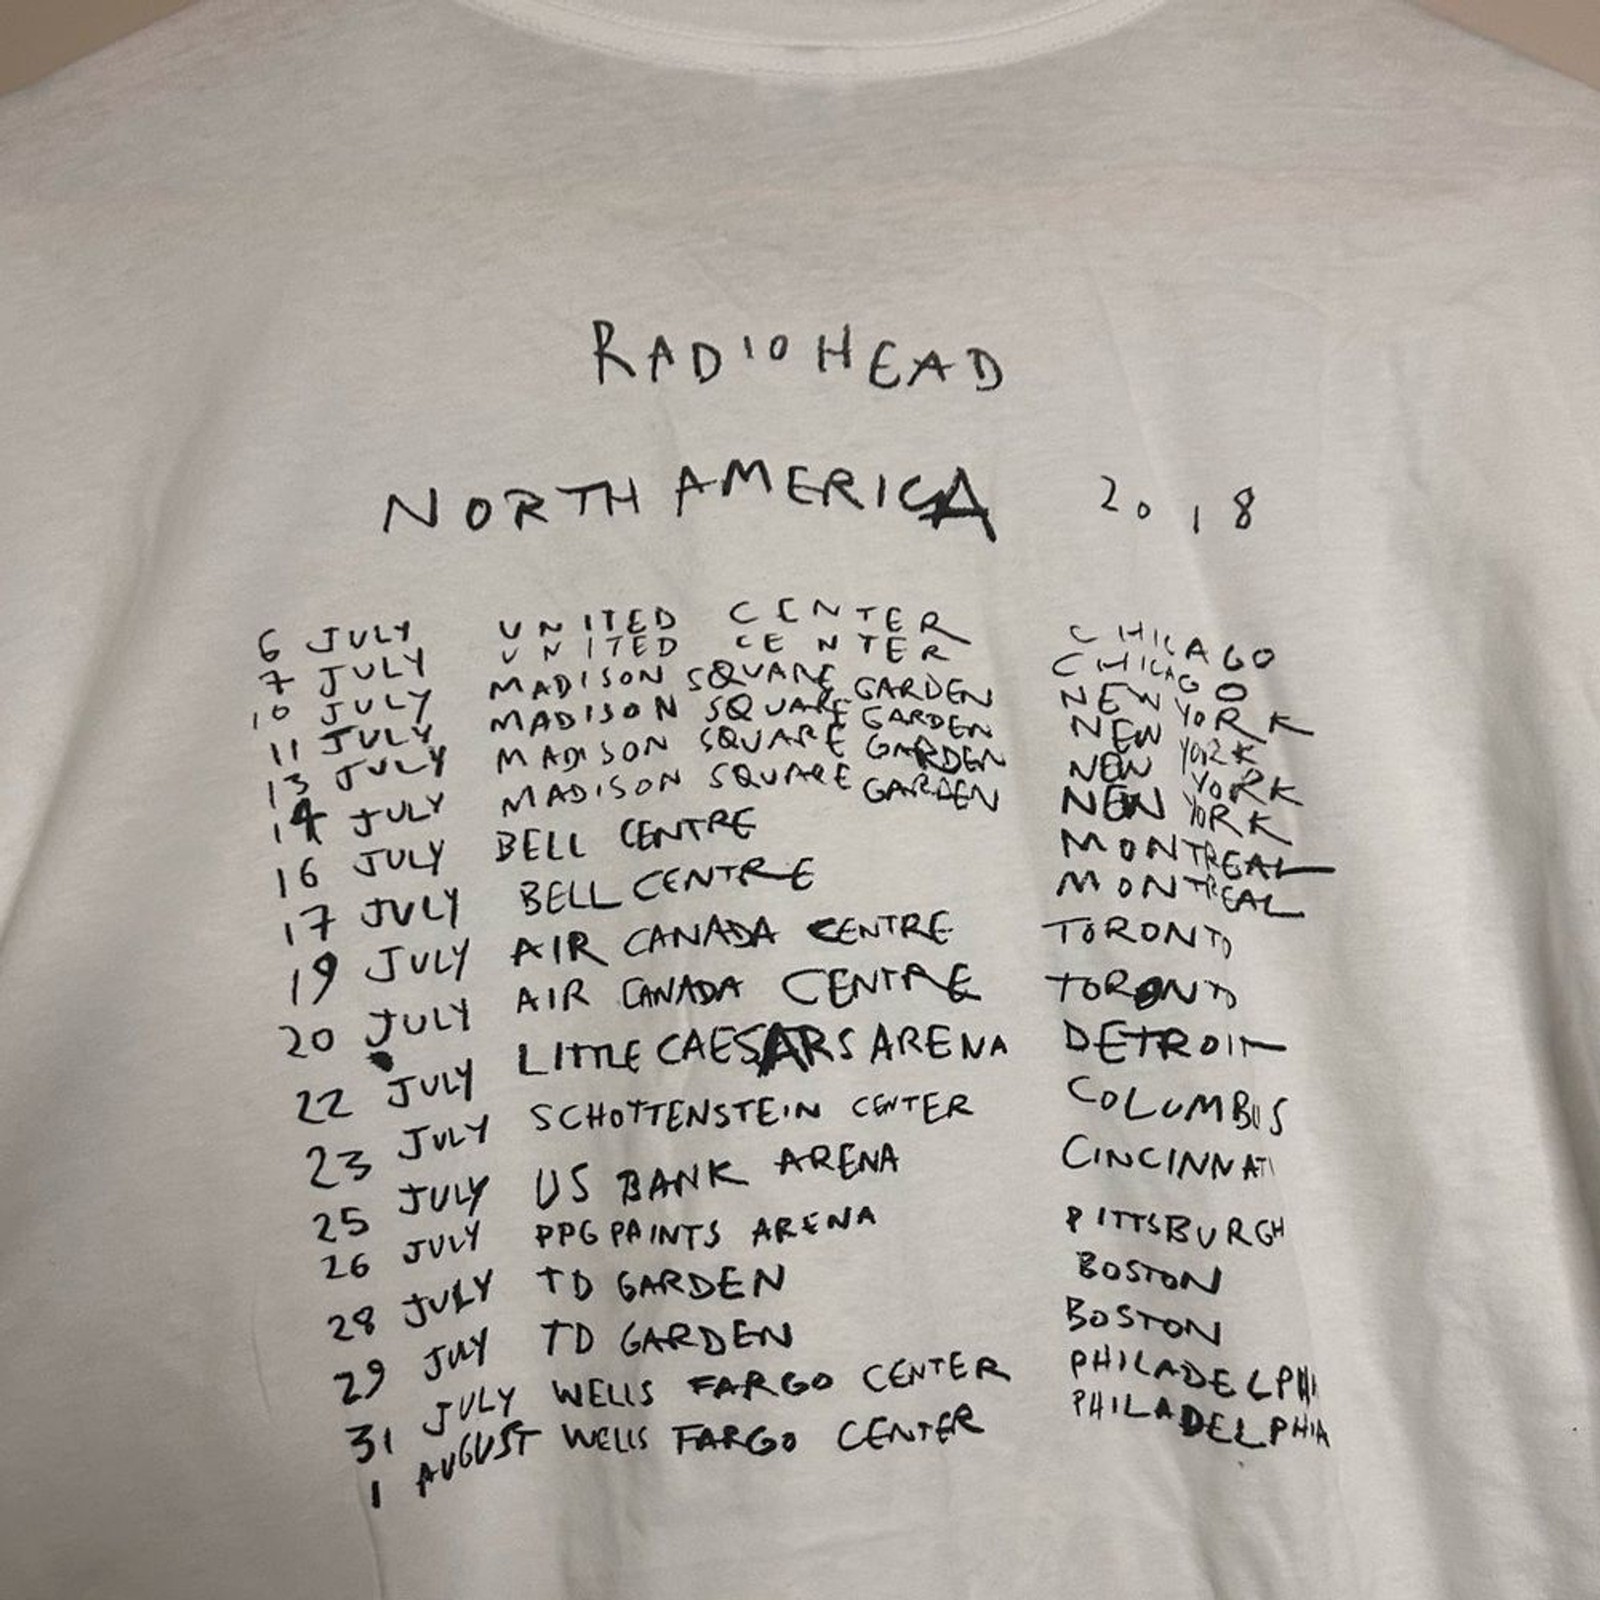 RADIOHEAD
NORTH AMERICA 2018
6 JULY UNITED CENTER CHICAGO
7 JULY UNITED CENTER CHICAGO
10 JULY MADISON SQUARE GARDEN NEW YORK
11 JULY MADISON SQUARE GARDEN NEW YORK
13 JULY MADISON SQUARE GARDEN NEW YORK
14 JULY MADISON SQUARE GARDEN NEW YORK
16 JULY BELL CENTRE MONTREAL
17 JULY BELL CENTRE MONTREAL
19 JULY AIR CANADA CENTRE TORONTO
20 JULY AIR CANADA CENTRE TORONTO
22 JULY LITTLE CAESARS ARENA DETROIT
23 JULY SCHOTTENSTEIN CENTER COLUMBUS
25 JULY US BANK ARENA CINCINNATI
26 JULY PPG PAINTS ARENA PITTSBURGH
28 JULY TD GARDEN BOSTON
29 JULY TD GARDEN BOSTON
31 JULY WELLS FARGO CENTER PHILADELPHI
1 AUGUST WELLS FARGO CENTER PHILADELPHIA